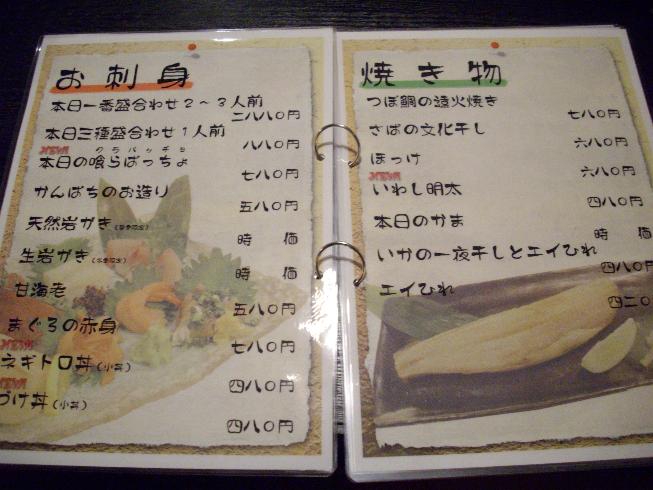 お刺身
本日一番盛合わせ２～３人前
二八八〇円
本日三種盛合わせ１人前
八八〇円
NEW
クラバッチョ
本日の喰らばっちょ
七八〇円
かんぱちのお造り
五八〇円
天然岩かき
時価
生岩かき
時価
甘海老
五八〇円
まぐろの赤身
七八〇円
NEW
ネギトロ丼(小丼)
四八〇円
NEW
づけ丼(小丼)
四八〇円
焼き物
つぼ鯛の遠火焼き
七八〇円
さばの文化干し
六八〇円
ほっけ
六八〇円
NEW
いわし明太
四八〇円
本日のかま
時価
いかの一夜干しとエイひれ
四八〇円
エイひれ
四二〇